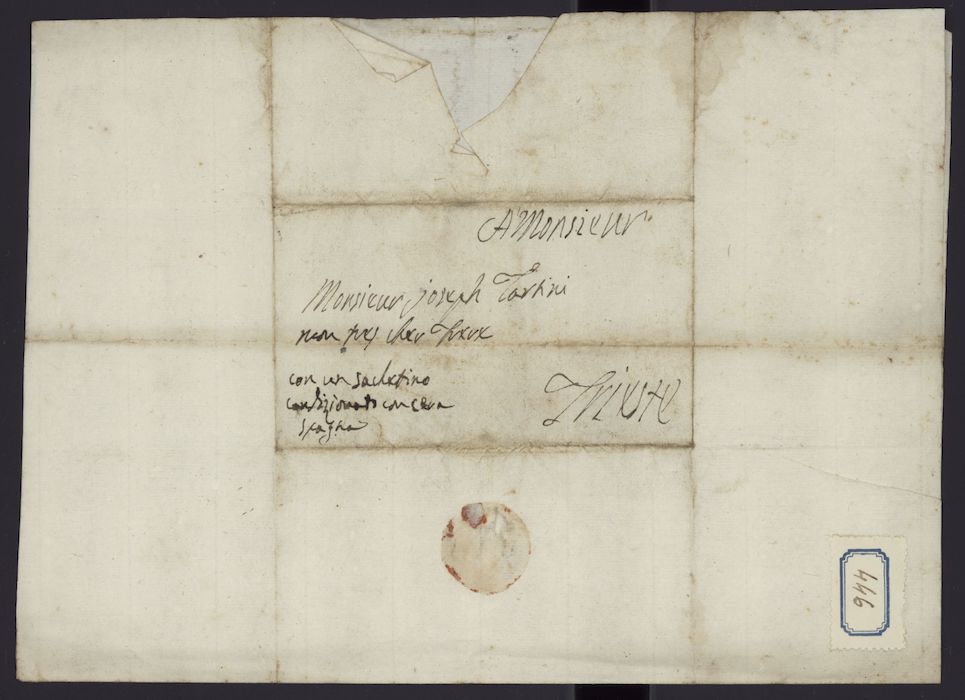 A Monsieur
Monsieur joseph Tartini
mon tres cher Frere
con un sachetino
condizionato con cera
spagna
Trieste
446